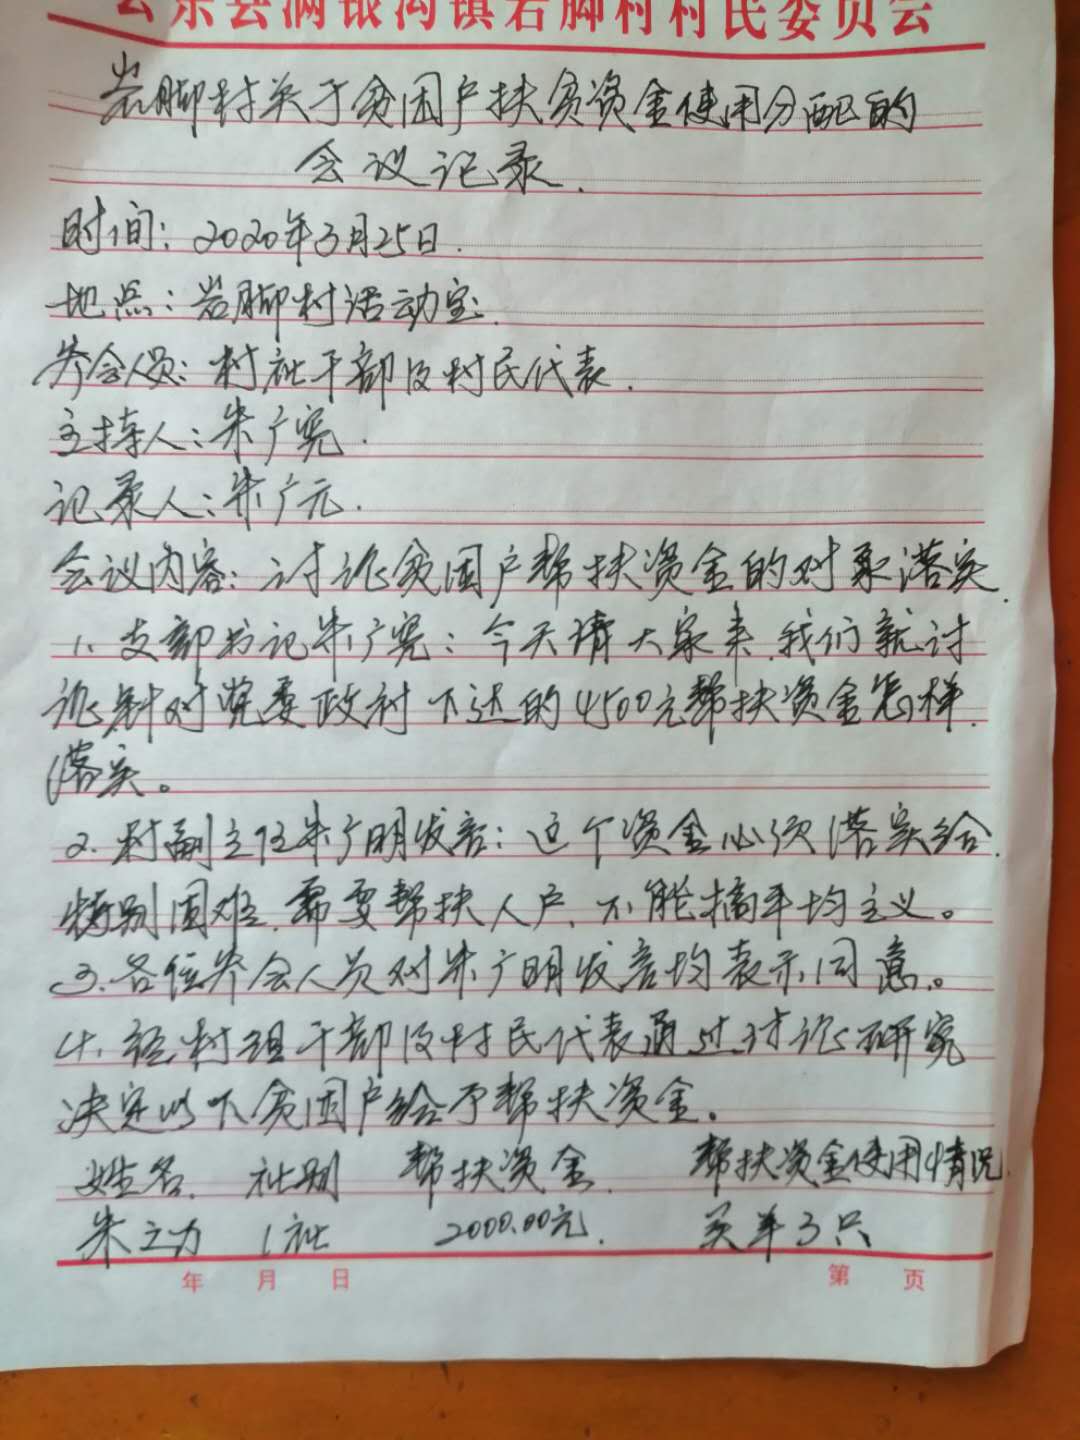 会东县满银沟镇岩脚村村民委员会
岩脚村关于贫困户扶贫资金使用分配的
会议记录.
时间: 2020年3月25日.
地点: 岩脚村活动室.
参会人员: 村社干部及村民代表.
主持人: 朱广宪.
记录人: 朱广元.
会议内容: 讨论贫困户帮扶资金的对象落实.
1、支部书记朱广宪: 今天请大家来,我们就讨
论针对党委政府下达的4500元帮扶资金怎样
落实。
2.村副主任朱广明发言: 这个资金必须落实给
特别困难,需要帮扶人户,不能搞平均主义。
3.各位参会人员对朱广明发言均表示同意。
4、经村组干部及村民代表通过讨论研究
决定以下贫困户给予帮扶资金。
姓名. 社别 帮扶资金 帮扶资金使用情况.
朱立力 1社 2000.00元. 买羊3只
年 月 日 第 页